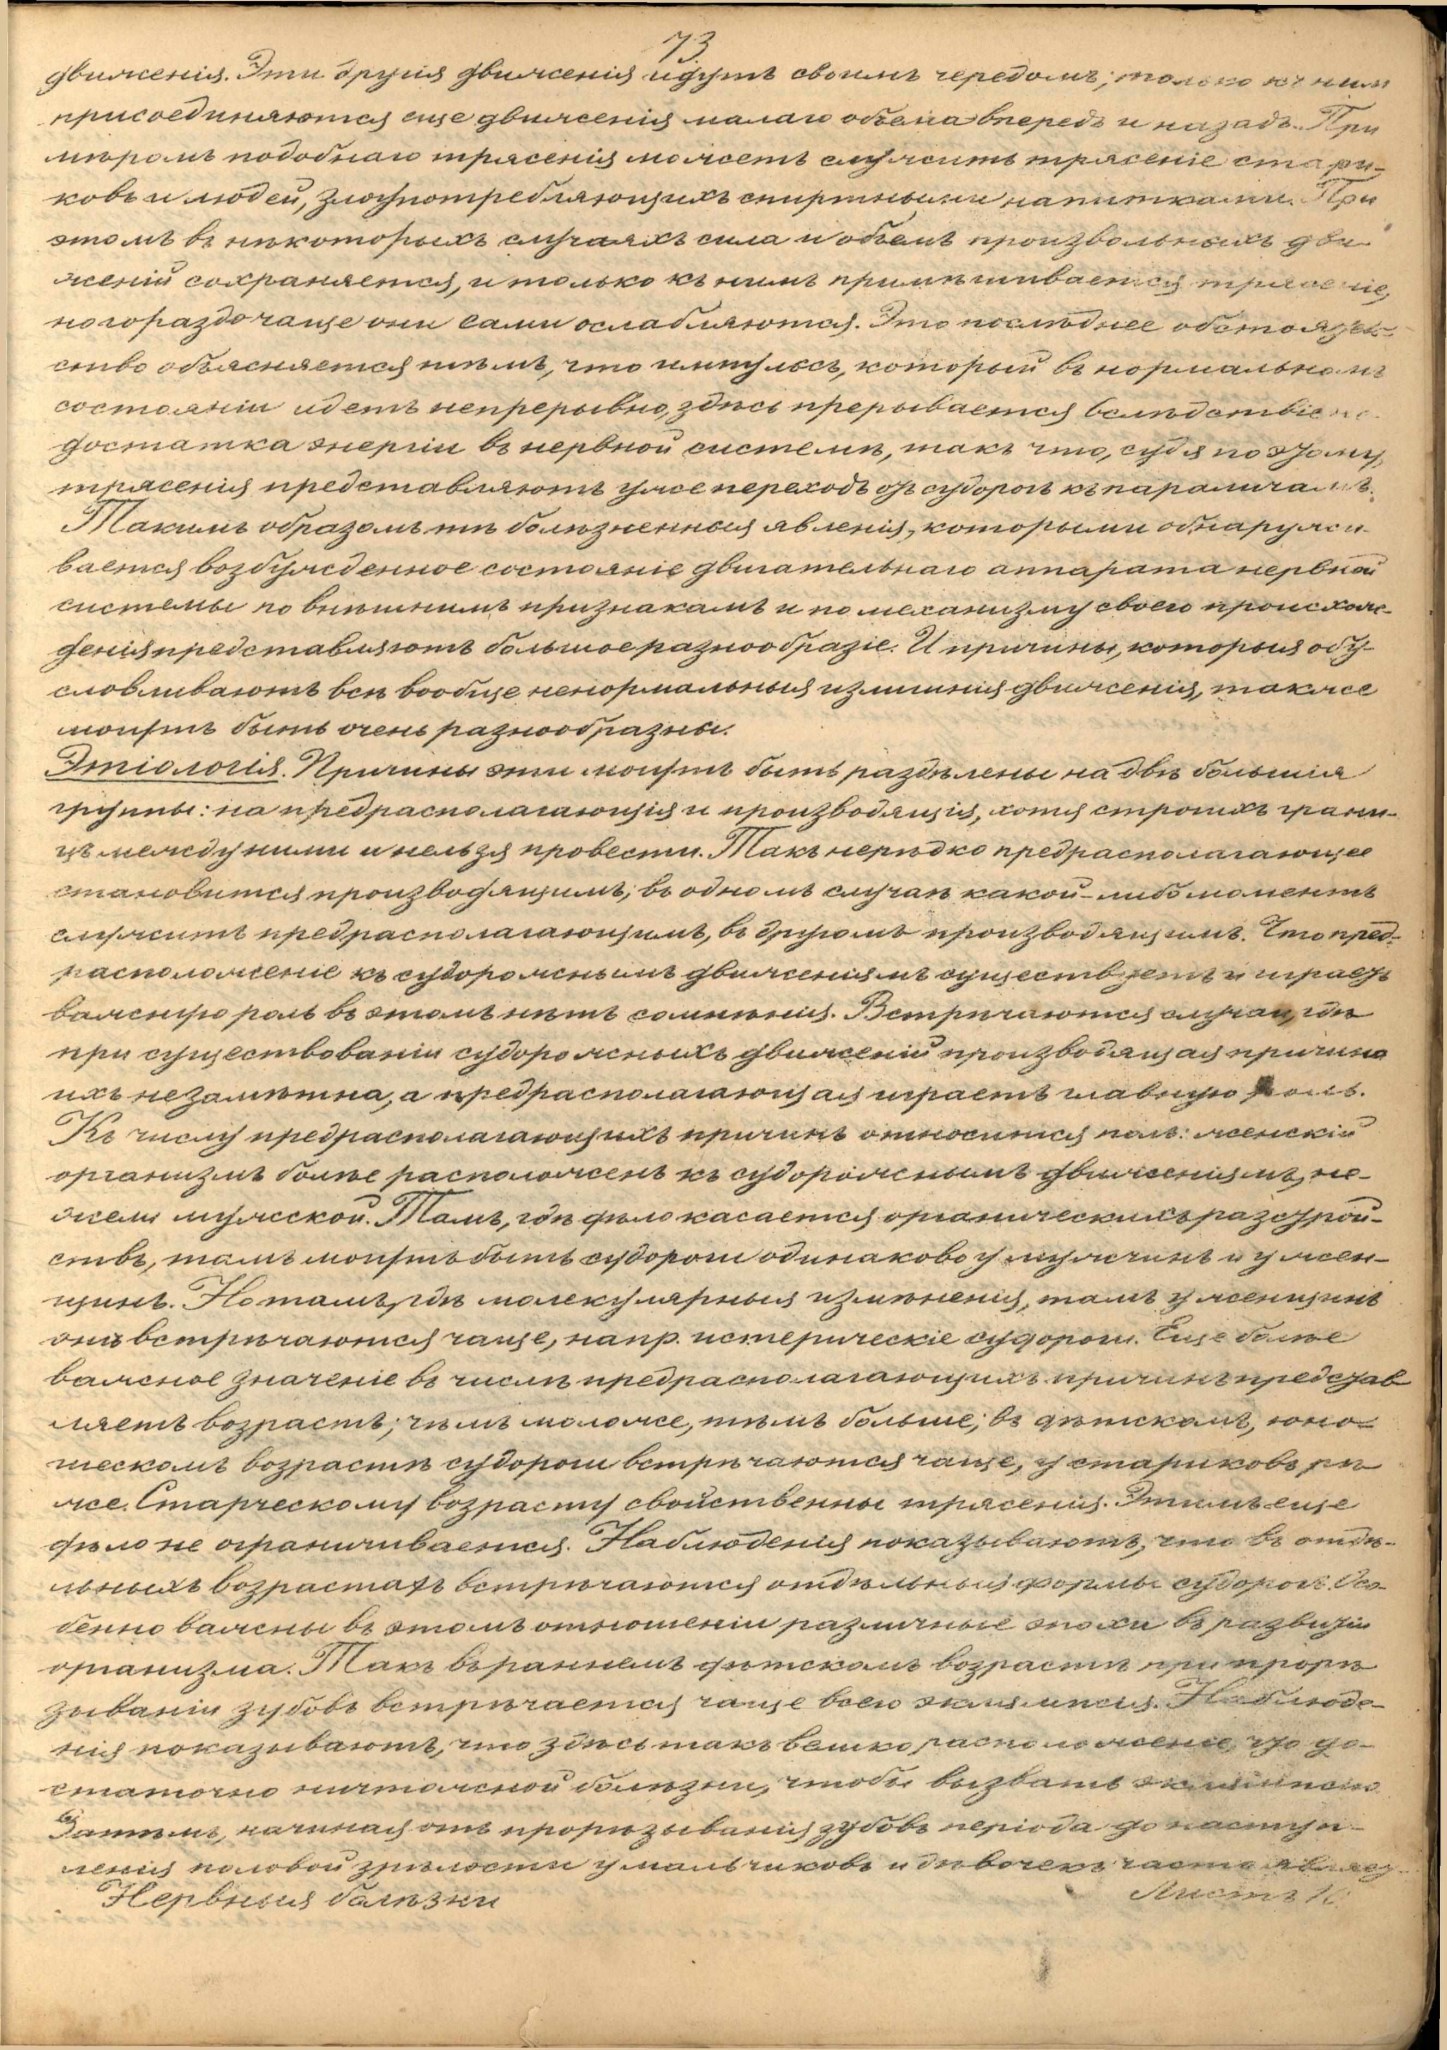 73
движенія. Эти другія движенія идутъ своимъ чередомъ; только къ ним
присоединяются еще движенія малаго объема впередъ и назадъ. При
мѣромъ подобнаго трясенія можетъ служить трясеніе стари-
ковъ и людей, злоупотребляющихъ спиртными напитками. При
этомъ въ нѣкоторыхъ случаяхъ сила и объемъ произвольныхъ дви
женій сохраняется, и только къ нимъ примѣшивается трясеніе,
но гораздо чаще они сами ослабляются. Это послѣднее обстоятель-
ство объясняется тѣмъ, что импульсъ, который въ нормальномъ
состояніи идетъ непрерывно, здѣсь прерывается вслѣдствіе не
достатка энергіи въ нервной системѣ, такъ что, судя по этому,
трясенія представляютъ уже переходъ отъ судорогъ къ параличамъ.
Такимъ образомъ тѣ болѣзненныя явленія, которыми обнаружи-
вается возбужденное состояніе двигательнаго аппарата нервной
системы по внѣшнимъ признакамъ и по механизму своего происхож-
денія представляютъ большое разнообразіе. И причины, которыя обу-
словливаютъ всѣ вообще ненормальныя излишнія движенія, также
могутъ быть очень разнообразны.
Этіологія. Причины эти могутъ быть раздѣлены на двѣ большія
группы: на предрасполагающія и производящія, хотя строгихъ грани-
цъ между ними и нельзя провести. Такъ нерѣдко предрасполагающее
становится производящимъ; въ одномъ случаѣ какой-либо моментъ
служитъ предрасполагающимъ, въ другомъ производящимъ. Что пред-
расположеніе къ судорожнымъ движеніямъ существуетъ и играетъ
важную роль въ этомъ нѣтъ сомнѣнія. Встрѣчаются случаи, гдѣ
при существованіи судорожныхъ движеній производящая причина
ихъ незамѣтна, а предрасполагающая играетъ главную роль.
Къ числу предрасполагающихъ причинъ относится полъ: женскій
организмъ болѣе расположенъ къ судорожнымъ движеніямъ, не-
жели мужской. Тамъ, гдѣ дѣло касается органическихъ разстрой-
ствъ, тамъ могутъ быть судороги одинаково у мужчинъ и у жен-
щинъ. Но тамъ, гдѣ молекулярныя измѣненія, тамъ у женщинъ
онѣ встрѣчаются чаще, напр. истерическіе судороги. Еще болѣе
важное значеніе въ числѣ предрасполагающихъ причинъ представ
ляетъ возрастъ; чѣмъ моложе, тѣмъ больше; въ дѣтскомъ, юно-
шескомъ возрастѣ судороги встрѣчаются чаще, у стариковъ рѣ
же. Старческому возрасту свойственны трясенія. Этимъ еще
дѣло не ограничивается. Наблюденія показываютъ, что въ отдѣ-
льныхъ возрастахъ встрѣчаются отдѣльныя формы судорогъ. Осо-
бенно важны въ этомъ отношеніи различные эпохи въ развитіи
организма. Такъ въ раннемъ дѣтскомъ возрастѣ при прорѣ
зываніи зубовъ встрѣчается чаще всего эклямпсія. Наблюде-
нія показываютъ, что здѣсь такъ велико расположеніе, что до-
статочно ничтожной болѣзни, чтобы вызвать эклямпсію.
Затѣмъ, начиная отъ прорѣзыванія зубовъ періода до наступ-
ленія половой зрѣлости у мальчиковъ и дѣвочекъ часто являет-
Нервныя болѣзни
Листъ